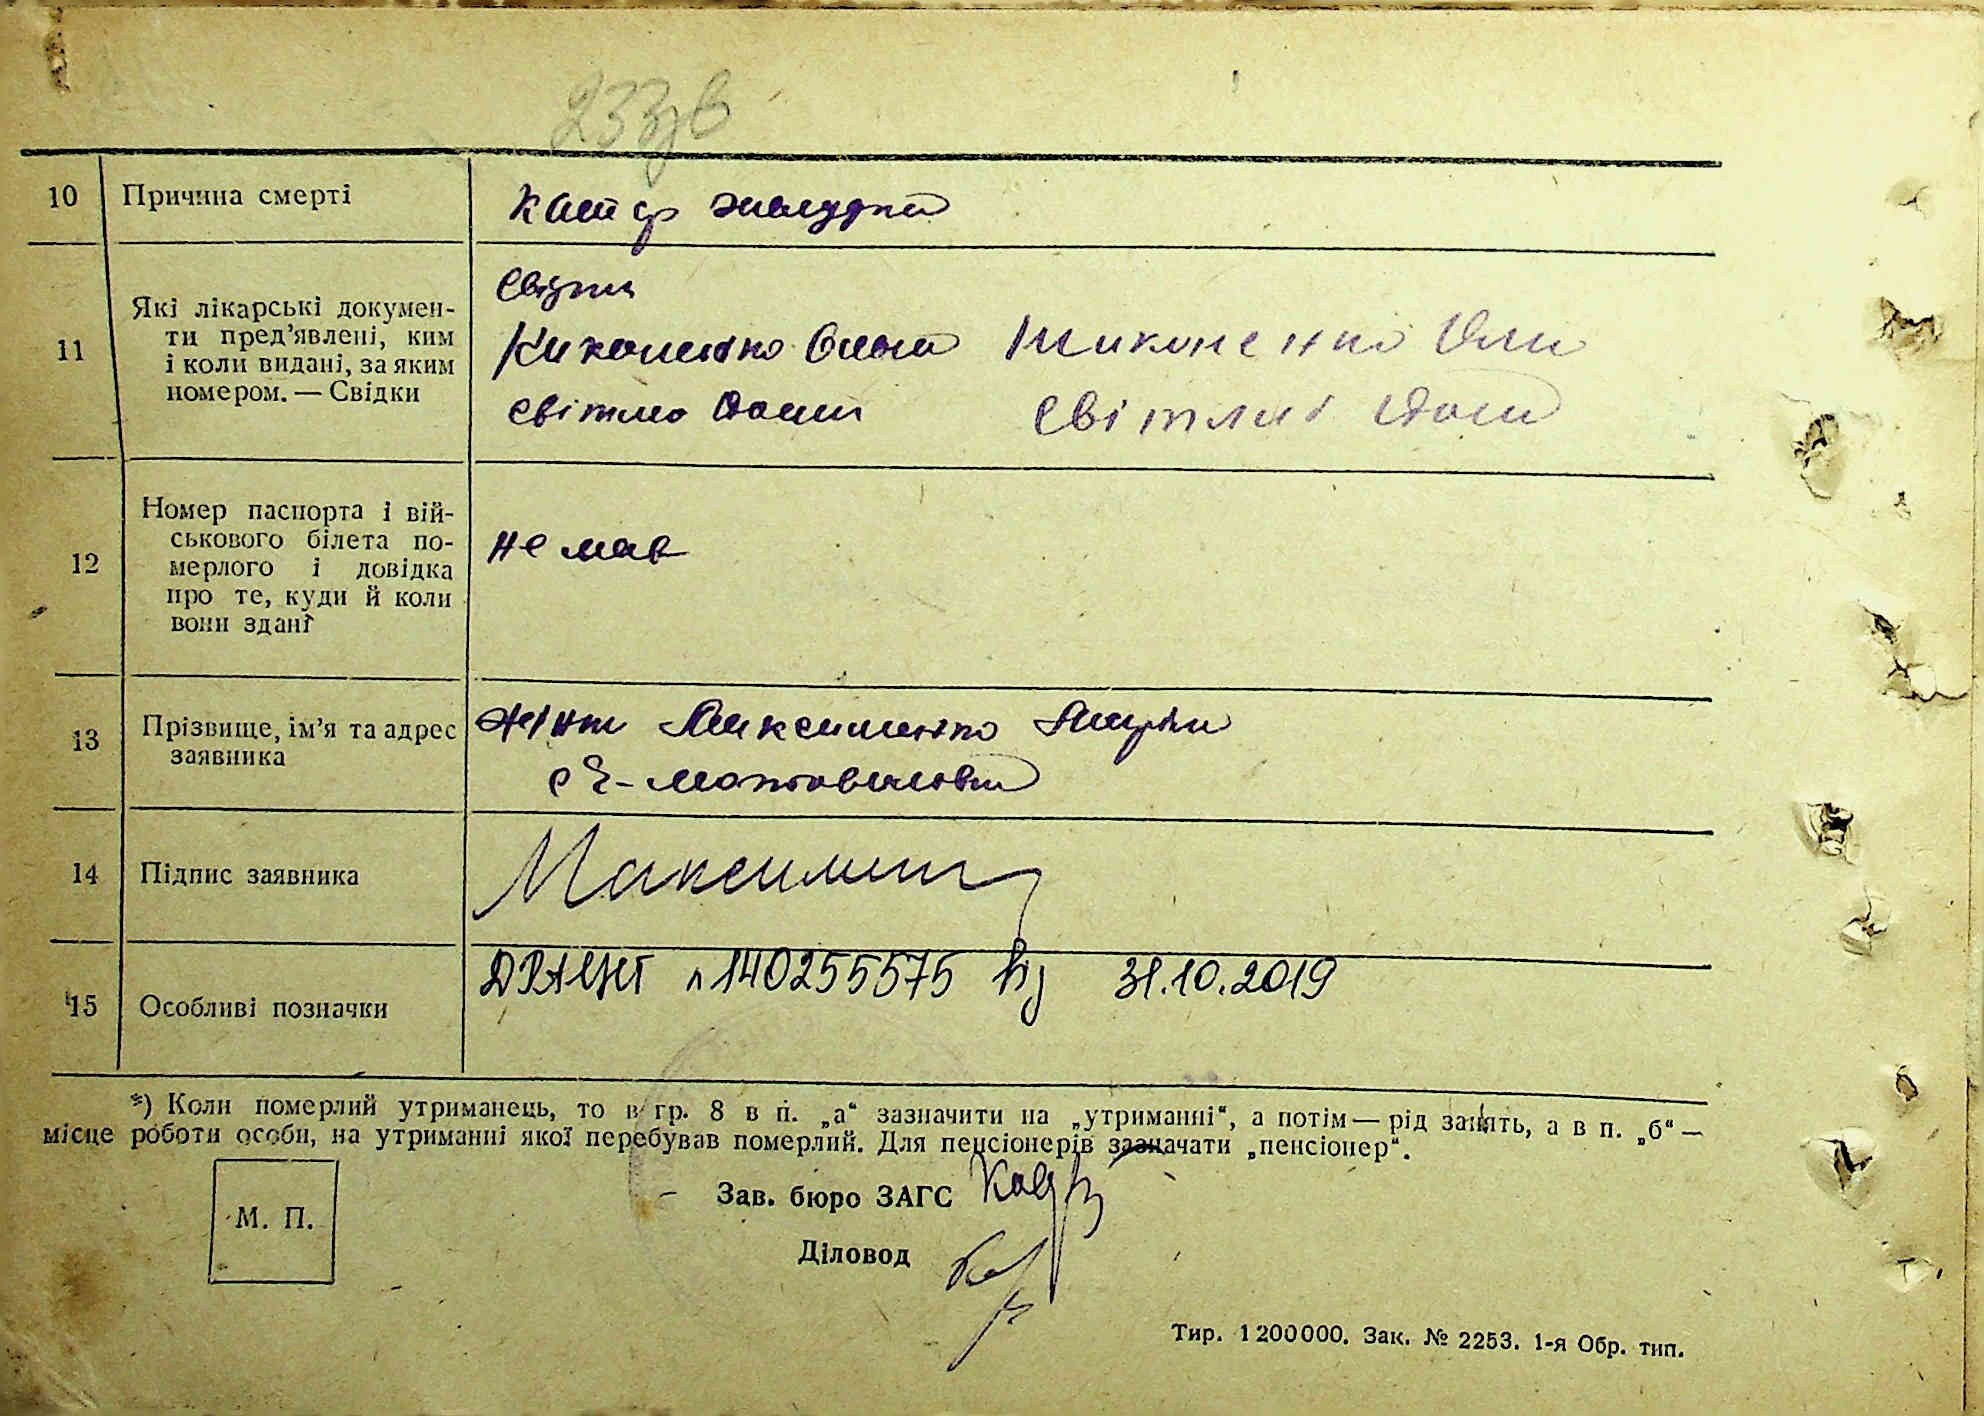 233зв
10 Причина смерті
Катар жалудка
11 Які лікарські докумен-
ти пред’явлені, ким
і коли видані, за яким
номером. — Свідки
Свідки
світло
12 Номер паспорта і вій-
ськового білета по-
мерлого і довідка
про те, куди й коли
вони здані
не мав
13 Прізвище, ім’я та адрес
заявника
Максименко
14 Підпис заявника
15 Особливі позначки
ДРАЦСГ 140255575 від 31.10.2019
*) Коли померлий утриманець, то в гр. 8 в п. „а“ зазначити на „утриманні“, а потім — рід занять, а в п. „б“ —
місце роботи особи, на утриманні якої перебував померлий. Для пенсіонерів зазначати „пенсіонер“.
М. П.
Зав. бюро ЗАГС
Діловод
Тир. 1200000. Зак. № 2253. 1-я Обр. тип.